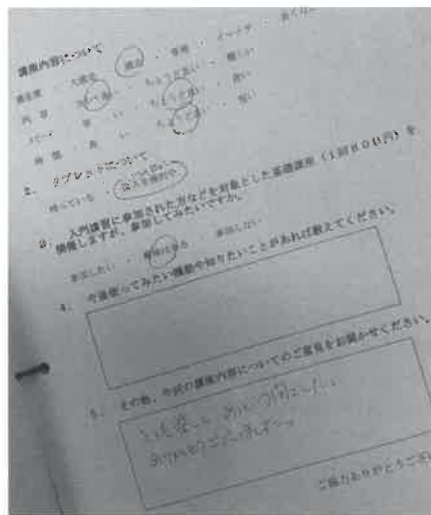 講座内容について
満足度 ・ 大満足 ・ 満足 ・ 普通 ・ イマイチ ・ 良くない
内容 ・ ・ ちょうど良い ・ 難しい
スピード ・ 早い ・ ちょうど良い ・ 遅い
時間 ・ 長い ・ ちょうど良い ・ 短い
2. タブレットについて
持っている ・ ・ 購入を検討中
3. 入門講習に参加された方などを対象とした基礎講座(1回500円)を
開催しますが、参加してみたいですか。
参加したい ・ 興味はある ・ 参加しない
4. 今後使ってみたい機能や知りたいことがあれば教えてください。
5. その他、今回の講座内容についてのご意見をお聞かせください。
ありがとうございました。
ご協力ありがとうござい